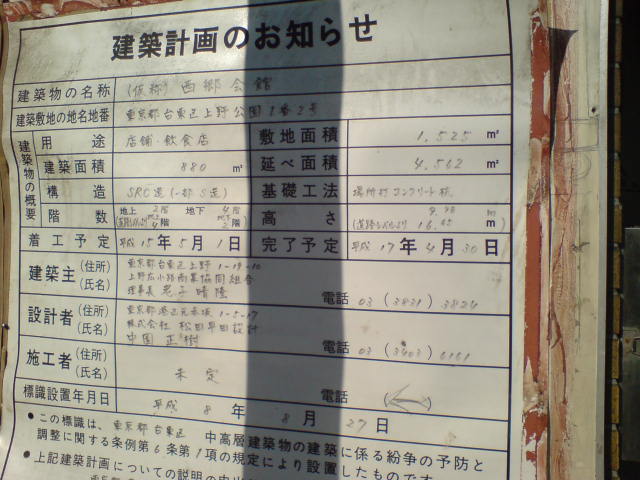 建築計画のお知らせ
建築物の名称 (仮称) 西郷会館
建築敷地の地名地番 東京都台東区上野公園1番2号
建築物の概要
用途 店舗・飲食店 敷地面積 1,525 ㎡
建築面積 880 ㎡ 延べ面積 4,562 ㎡
構造 SRC造(一部S造) 基礎工法 場所打コンクリート杭
階数 地上 2階 地下 4階
高さ m
着工予定 平成15年5月1日 完了予定 平成17年4月30日
建築主 (住所) 東京都台東区上野1-19-10
(氏名) 上野広小路商業協同組合
理事長
電話 03 (3831) 3824
設計者 (住所) 東京都港区元赤坂1-5-17
(氏名) 株式会社 松田平田設計
中園 正樹
電話 03 (3403) 6161
施工者 (住所)
(氏名) 未定
電話 ( )
標識設置年月日 平成 8年 8月 27日
●この標識は、東京都台東区 中高層建築物の建築に係る紛争の予防と
調整に関する条例第6条第1項の規定により設置したものです。
●上記建築計画についての説明の申出